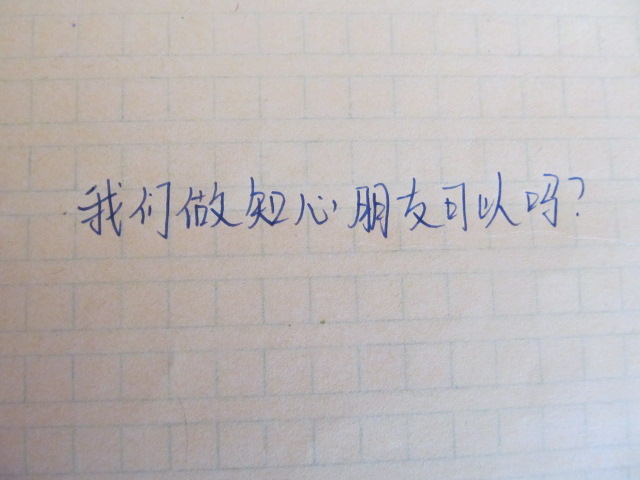 我们做知心朋友可以吗？